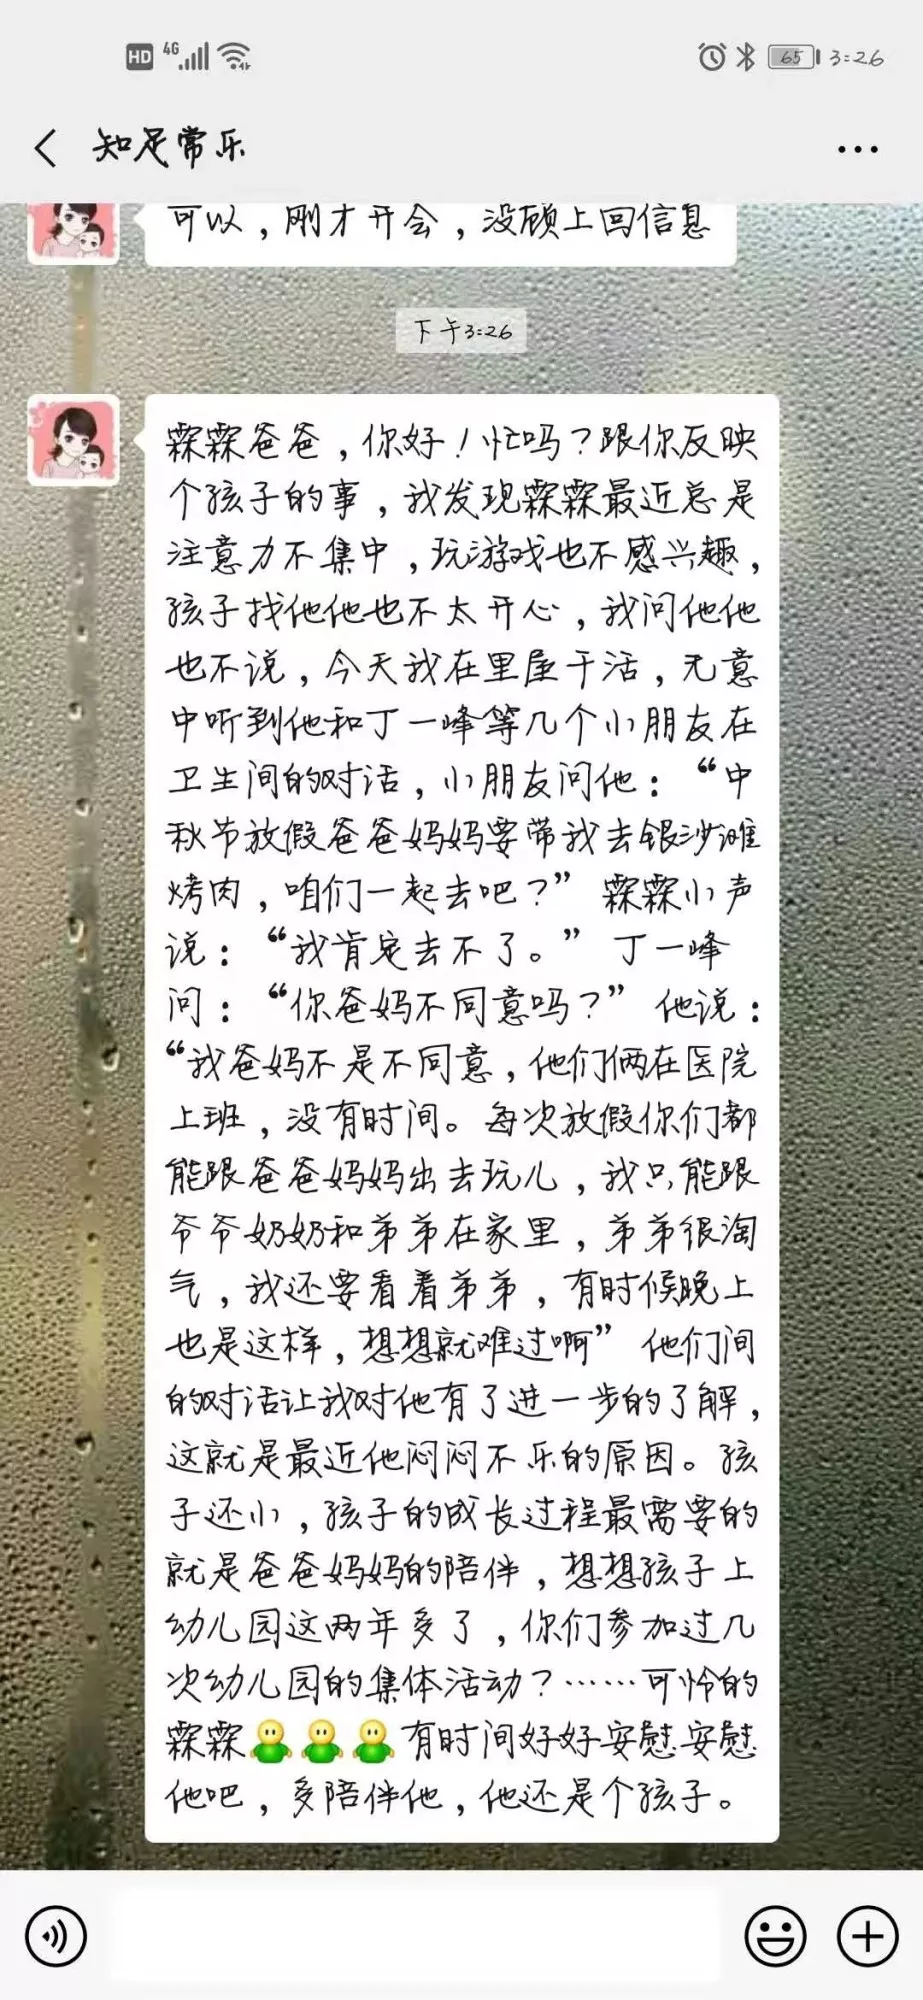 HD 4G 65 3:26
知足常乐
可以，刚才开会，没顾上回信息
下午3:26
霖霖爸爸，你好！忙吗？跟你反映
个孩子的事，我发现霖霖最近总是
注意力不集中，玩游戏也不感兴趣，
孩子找他他也不太开心，我问他他
也不说，今天我在里屋干活，无意
中听到他和丁一峰等几个小朋友在
卫生间的对话，小朋友问他：“中
秋节放假爸爸妈妈要带我去银沙滩
烤肉，咱们一起去吧？”霖霖小声
说：“我肯定去不了。”丁一峰
问：“你爸妈不同意吗？”他说：
“我爸妈不是不同意，他们俩在医院
上班，没有时间。每次放假你们都
能跟爸爸妈妈出去玩儿，我只能跟
爷爷奶奶和弟弟在家里，弟弟很淘
气，我还要看着弟弟，有时候晚上
也是这样，想想就难过啊”他们间
的对话让我对他有了进一步的了解，
这就是最近他闷闷不乐的原因。孩
子还小，孩子的成长过程最需要的
就是爸爸妈妈的陪伴，想想孩子上
幼儿园这两年多了，你们参加过几
次幼儿园的集体活动？……可怜的
霖霖有时间好好安慰安慰
他吧，多陪伴他，他还是个孩子。